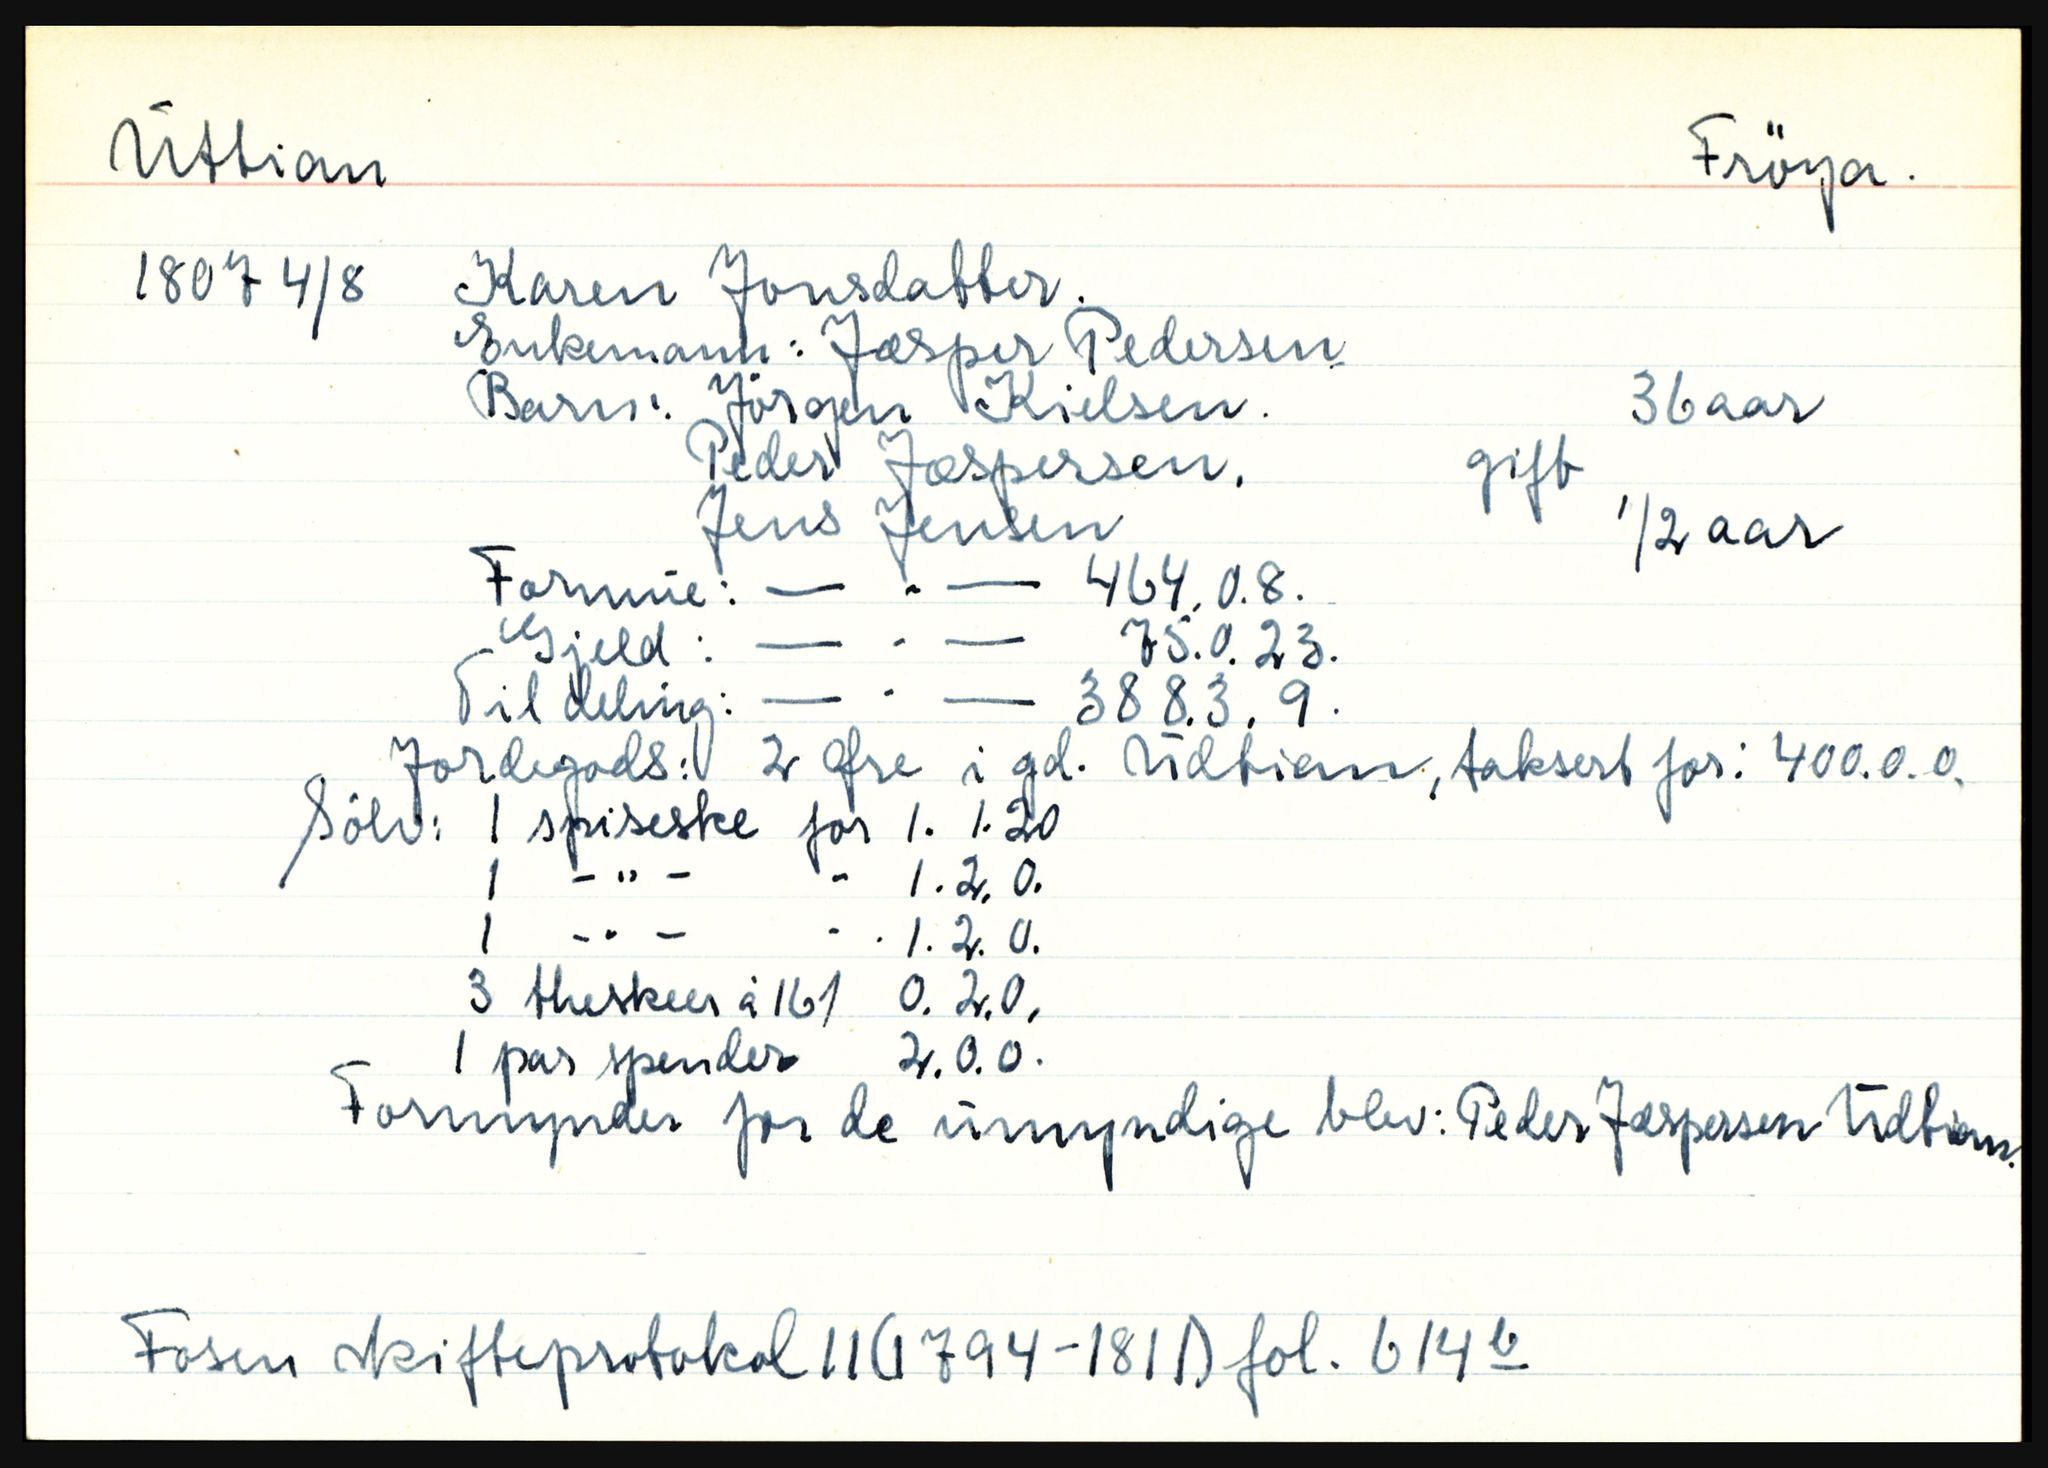 Uttian Fröya.
1807 4/8 Karen Jonsdatter.
Enkemann: Jæsper Pedersen
Barn: Jörgen Kielsen. 36 aar
Peder Jæspersen. gift
Jens Jensen 1/2 aar
Formue: — - — 464.0.8.
Gjeld: — - — 75.0.23.
Til deling: — - — 388.3.9.
Jordegods: 2 Øre i gd. Udtian, taksert for: 400.0.0.
Sölv: 1 spiseske for 1.1.20
1 -"- - 1.2.0.
1 -"- - 1.2.0.
3 theskeer à 16/ 0.2.0.
1 par spender 2.0.0.
Formynder for de umyndige blev: Peder Jæspersen Udtian.
Fosen skifteprotokol 11 (1794-1811) fol. 614b